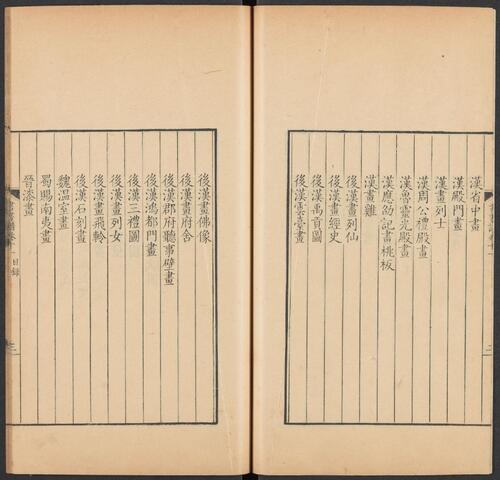 漢省中畫
漢殿門畫
漢畫列士
漢周公禮殿畫
漢魯靈光殿畫
漢應劭記畫桃板
漢畫雞
後漢畫列仙
後漢畫經史
後漢禹貢圖
後漢雲臺畫
後漢畫佛像
後漢畫府舍
後漢郡府聽事壁畫
後漢鴻都門畫
後漢三禮圖
後漢畫列女
後漢畫飛軨
後漢石刻畫
魏溫室畫
蜀賜南夷畫
晉漆畫
目錄
三